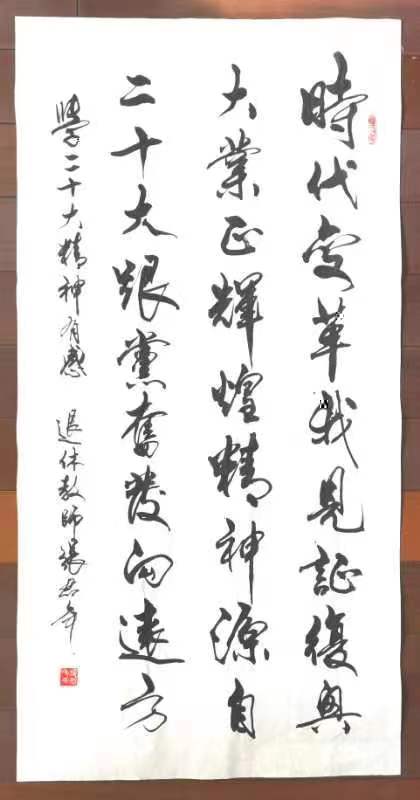 時代变革我見証復興
大業正輝煌精神源自
二十大跟黨奮發向遠方
學二十大精神有感 退休教師張